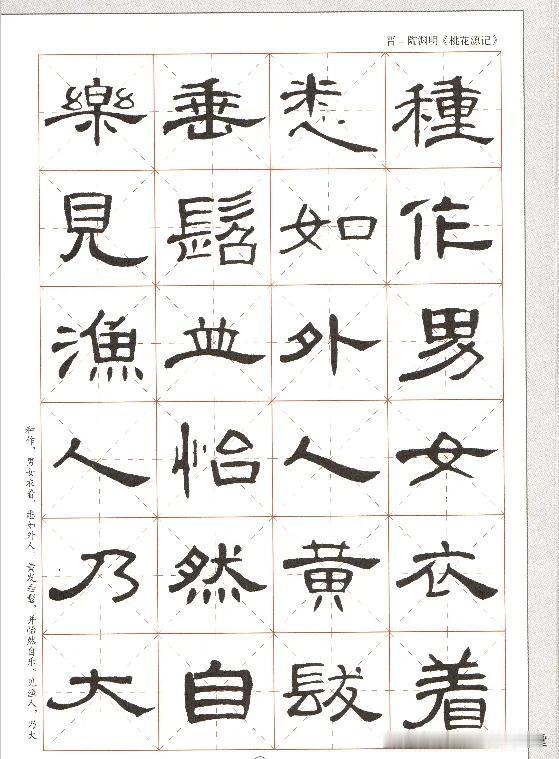 晋－陶渊明《桃花源记》
種作男女衣着
悉如外人黄髮
垂髫並怡然自
樂見漁人乃大
种作，男女衣着，悉如外人。黄发垂髫，并怡然自乐。见渔人，乃大